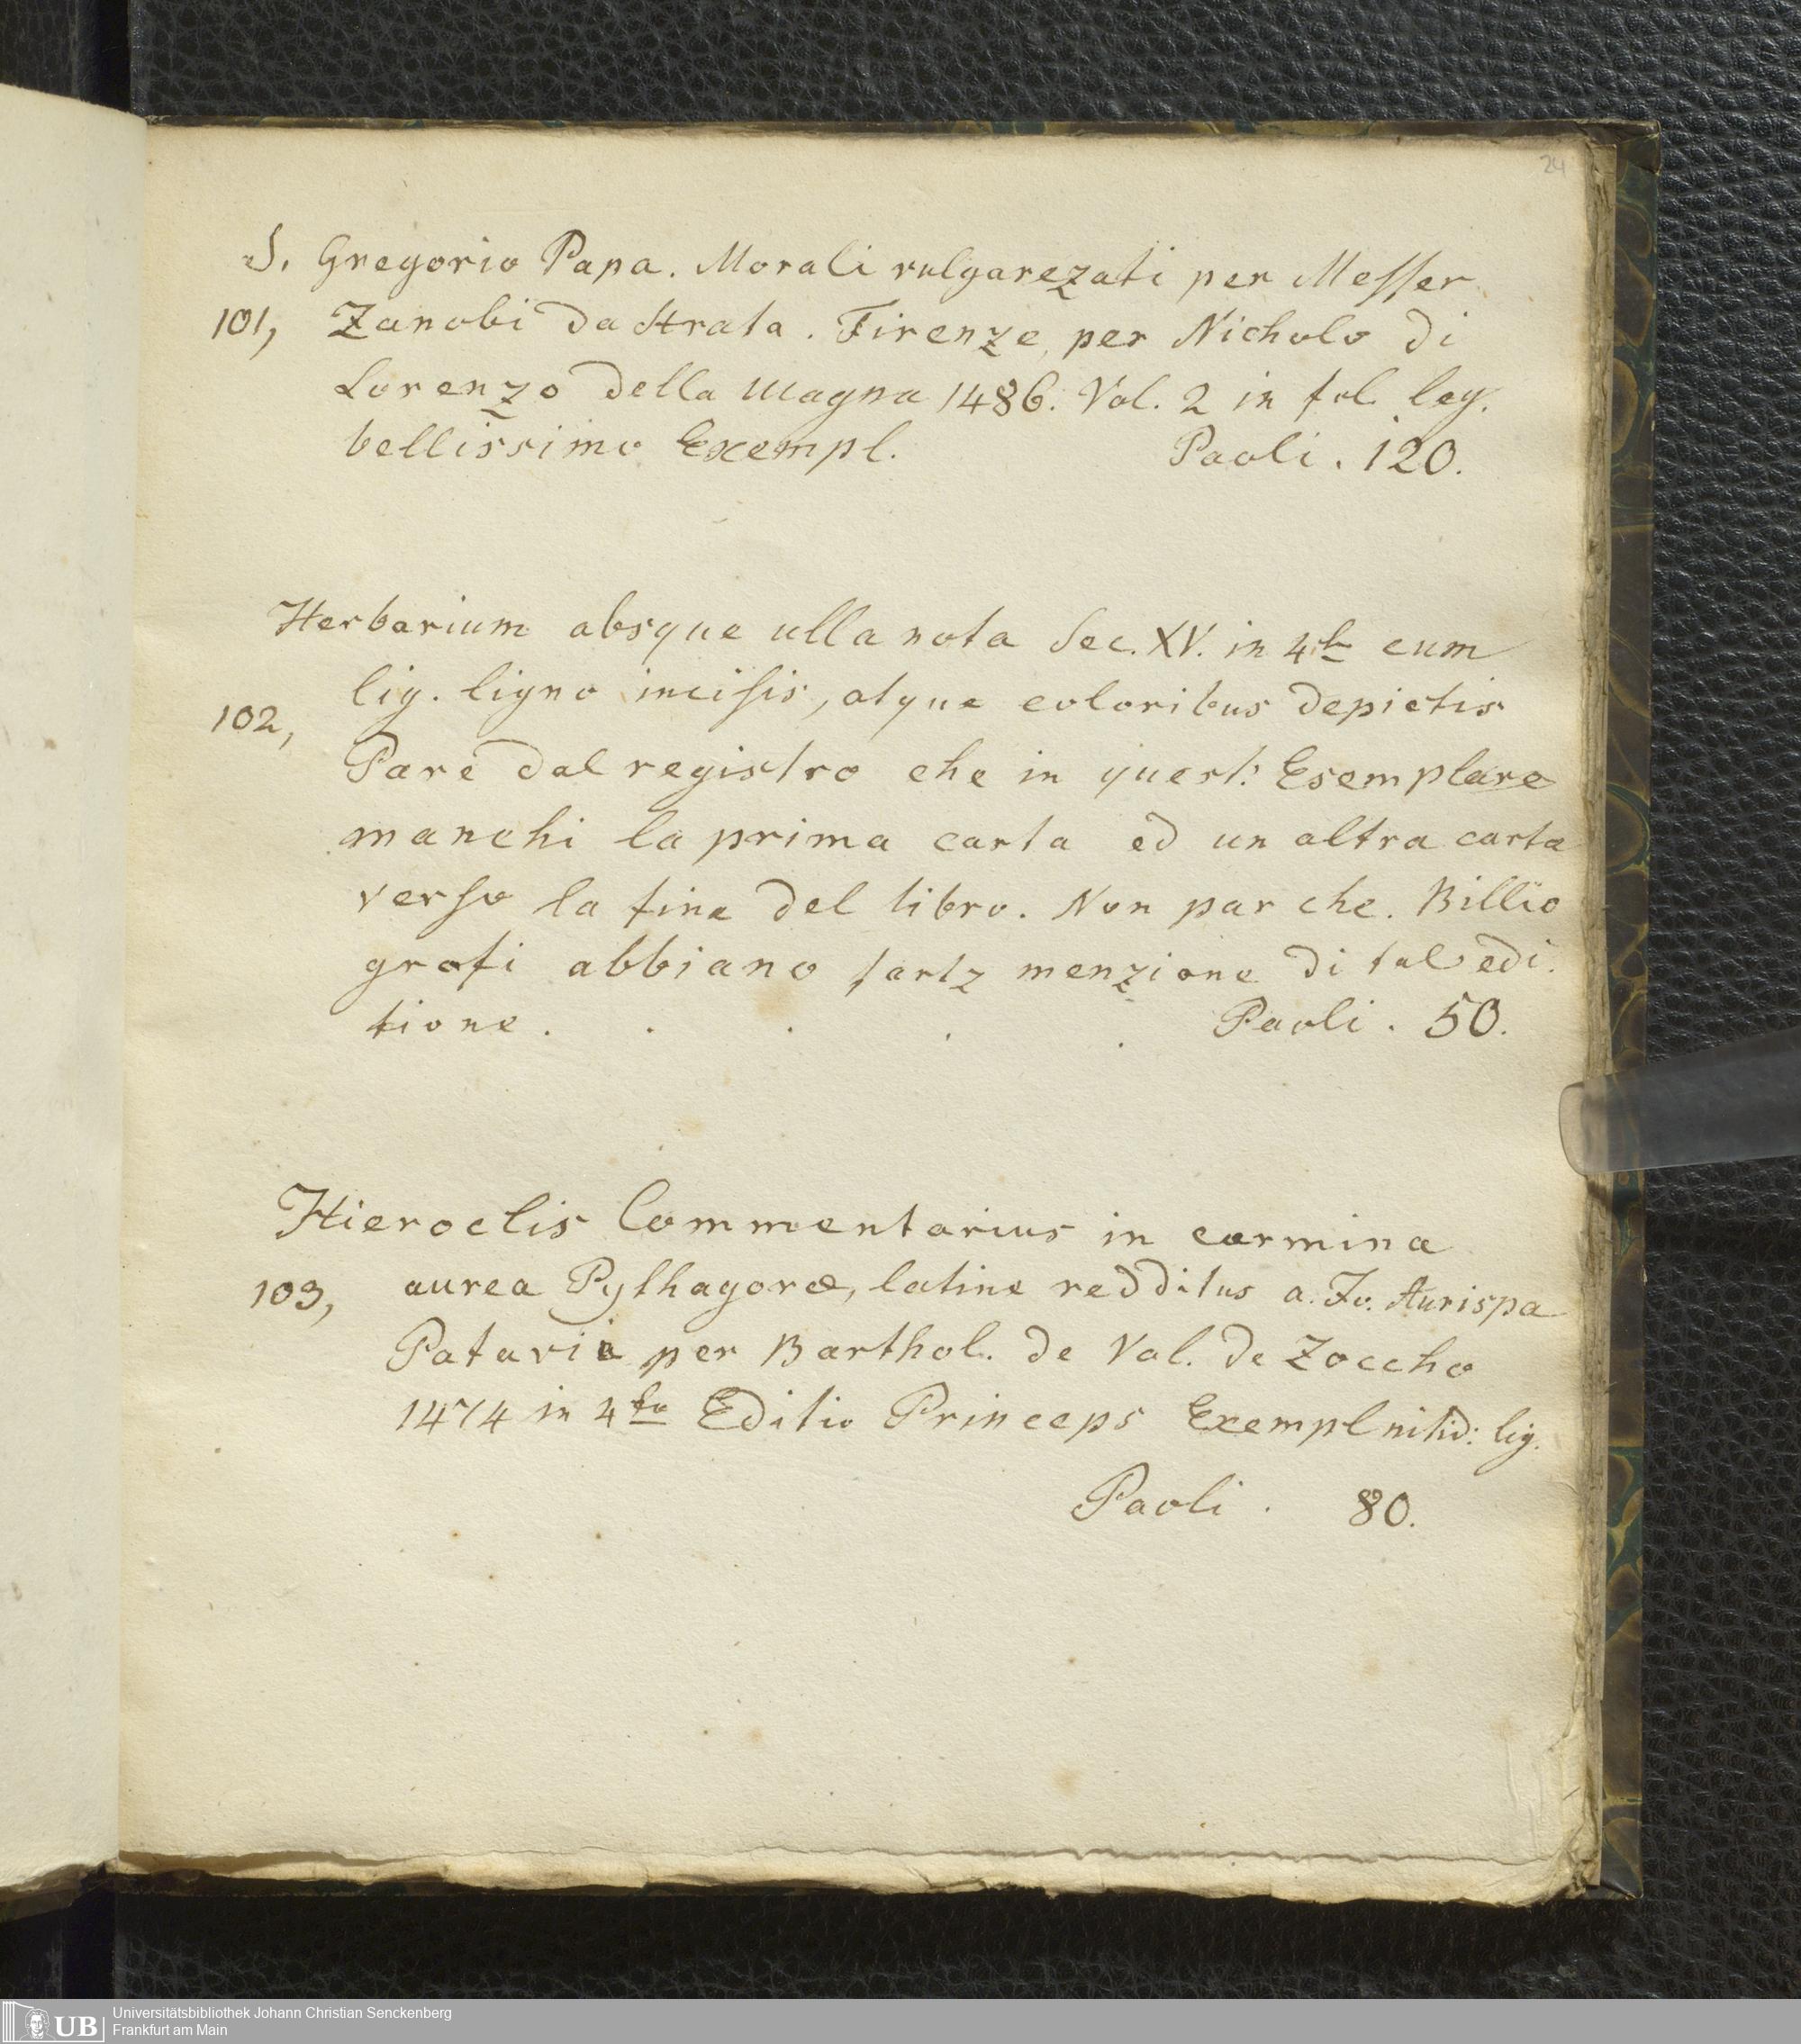 24
S. Gregorio Papa. Morali vulgarezati per Messer
101, Zanobi da Strata. Firenze, per Nicholo di
Lorenzo della Magna 1486. Vol. 2 in fol. leg.
bellissimo Exempl. Paoli. 120.
Herbarium absque ulla nota Sec. XV. in 4to cum
lig. ligno incisis, atque coloribus depictis
102,
Pare dal registro che in quest: Esemplare
manchi la prima carta ed un altra carta
verso la fine del libro. Non par che. Billio
grafi abbiano menzione di tal edi.
tione. . . . . Paoli. 50.
Hieroclis Commentarius in carmina
103, aurea Pythagoræ, latine redditus a. Jo. Aurispa
Patavia per Barthol. de Val. de Zoccho
1474 in 4to Editio Princeps Exempl nitid: lig.
Paoli. 80.
UB
Universitätsbibliothek Johann Christian Senckenberg
Frankfurt am Main